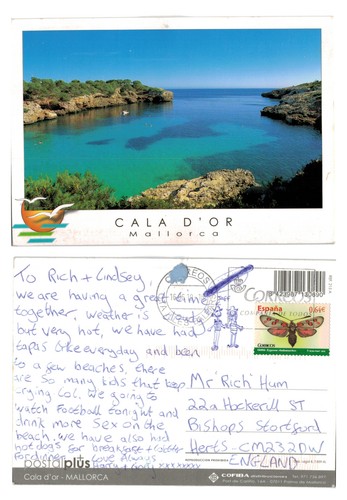 CALA D'OR
Mallorca
To Rich + Lindsey,
we are having a great time
together, weather is cloudy
but very hot, we have had
tapas like everyday and been
to a few beaches, there
are so many kids that keep
-rging lol. we going to
watch Football tonight and
drink more Sex on the
beach, we have also had
hot dogs for breakfast + lottes
for dinner. Love Always
xxxxxxxx
CORREOS
España
0,64€
CORREOS
Mr 'Rich' Hum
22a Hockerill ST
Bishops Stortford
Herts-CM232DW
ENGLAND
postalplus
Cala d'or - MALLORCA
COFIBA